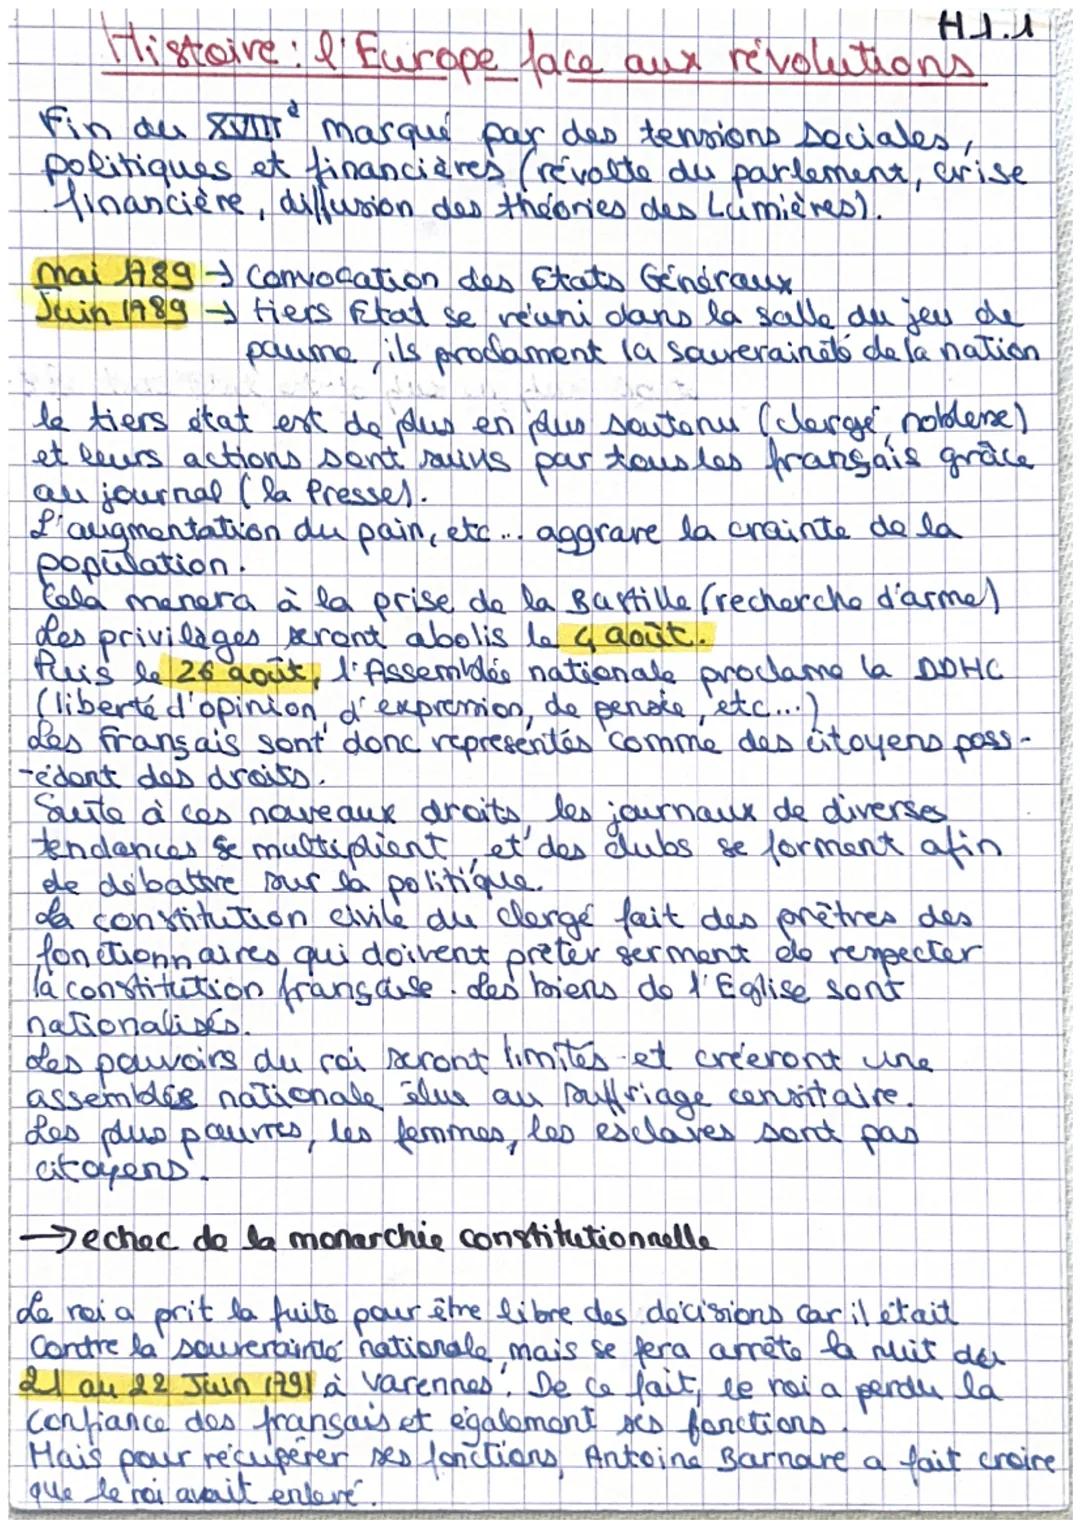 H.1.1
Histoire : l'Europe face aux révolutions
Fin du XVIII marqué par des tensions sociales,
politiques et financières (révolte du parlement, crise
financière, diffusion des théories des Lumières).
mai 1789 → Convocation des Etats Généraux
Juin 1789 → tiers Etat se réuni dans la salle du jeu de
paume, ils proclament la souveraineté de la nation
le tiers état est de plus en plus soutenu (clergé, noblesse)
et leurs actions sont suivis par tous les français grâce
au journal (la Presse).
L'augmentation du pain, etc... aggrave la crainte de la
population.
Cela menera à la prise de la Bastille (recherche d'arme)
Les privilèges seront abolis le 4 août.
Puis le 26 août, l'Assemblée nationale proclame la DDHC
(liberté d'opinion, d'expression, de pensée, etc...)
Les français sont donc représentés comme des citoyens poss-
-édant des droits.
Suite à ces nouveaux droits, les journaux de diverses
tendances se multiplient, et des clubs se forment afin
de débattre sur la politique.
La constitution civile du clergé fait des prêtres des
fonctionnaires qui doivent prêter serment de respecter
la constitution française. Les biens de l'Eglise sont
nationalisés.
Les pouvoirs du roi seront limités et créeront une
assemblée nationale élus au suffriage censitaire.
Les plus pauvres, les femmes, les esclaves sont pas
citoyens.
→ echec de la monarchie constitutionnelle
Le roi a prit la fuite pour être libre des décisions car il était
contre la souverainté nationale, mais se fera arrêté la nuit du
21 au 22 Juin 1791 à Varennes. De ce fait, le roi a perdu la
confiance des français et également ses fonctions.
Mais pour récupérer ses fonctions, Antoine Barnave a fait croire
que le roi avait enlevé.